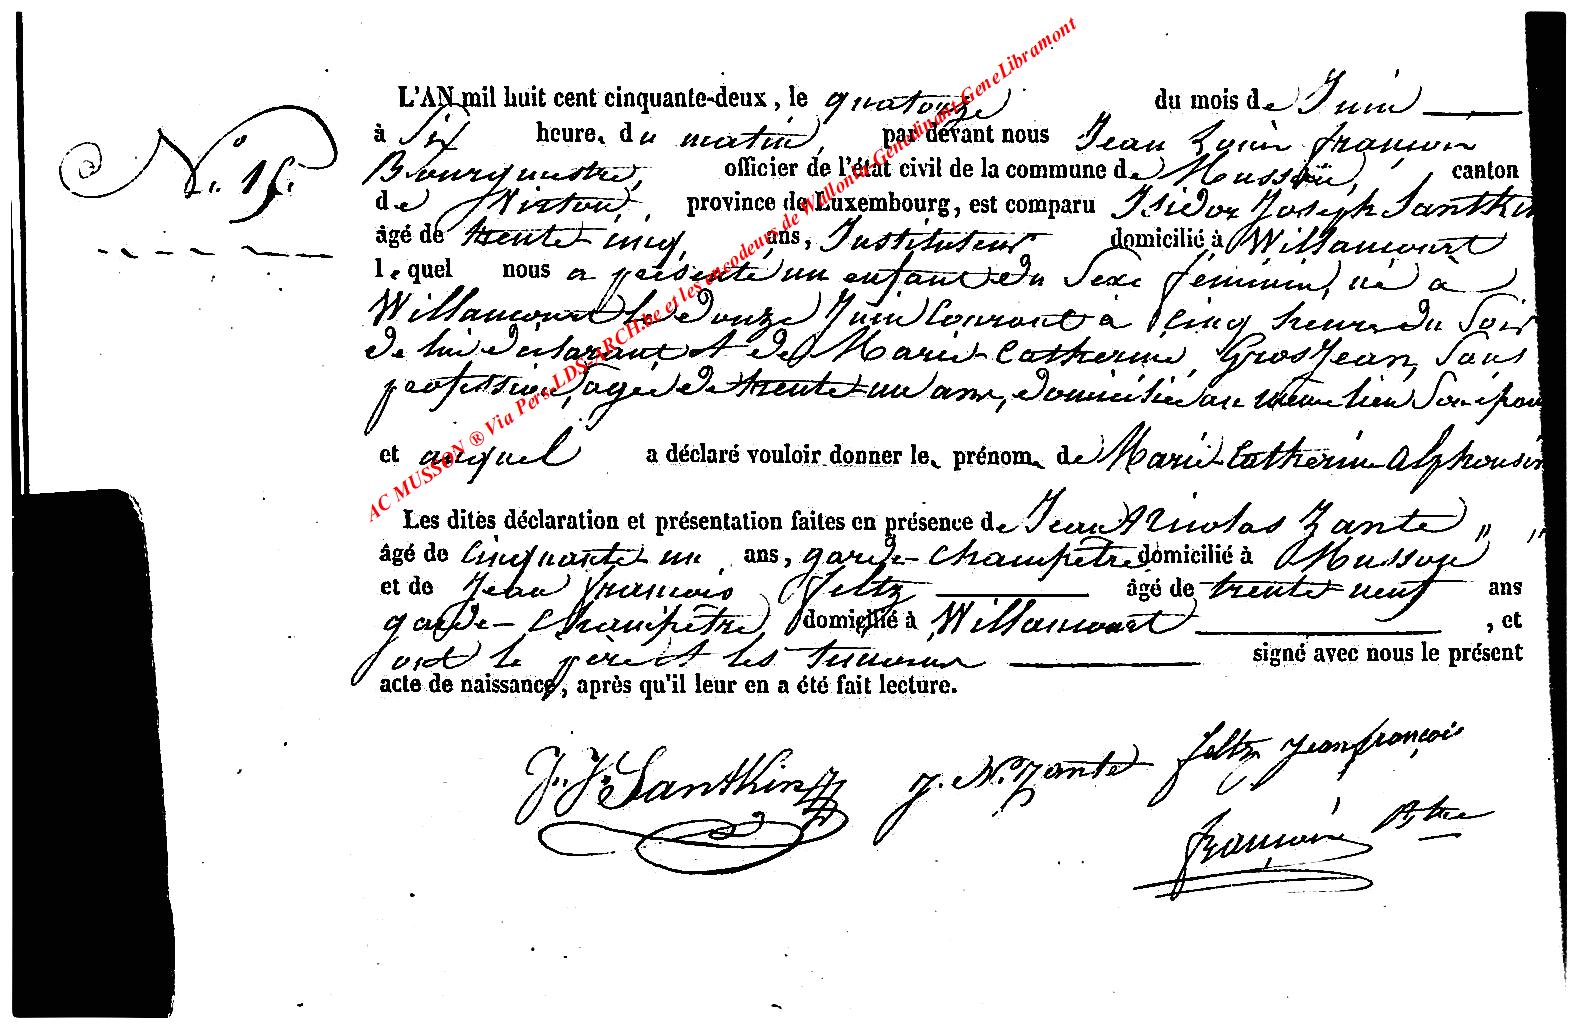 N.° 15.
L'AN mil huit cent cinquante-deux, le quatorze du mois de Juin
à Six heure. du matin, par devant nous Jean Louis françois
Bourguestre, officier de l'état civil de la commune de Musson, canton
de Virton, province de Luxembourg, est comparu Isidor Joseph Santkin
âgé de trente cinq, ans, Instituteur domicilié à Willancourt
lequel nous a présenté un enfant du Sexe féminin, né à
Willancourt le douze Juin Courant à cinq heures du Soir
de lui déclarant et de Marie Catherine GrosJean, Sans
profession, agée de trente un ans, domiciliée au même lieu
et auquel a déclaré vouloir donner le. prénom. de Marie Catherine Alphonsin
Les dites déclaration et présentation faites en présence de Jean Nicolas Zante " "
âgé de Cinquante un ans, garde-Champêtre domicilié à Musson
et de Jean François Feltz âgé de trente neuf ans
garde-Champêtre domicilié à Willancourt , et
ont le père et les témoins signé avec nous le présent
acte de naissance, après qu'il leur en a été fait lecture.
J. J. Santkin J. N. Zante feltz jeanfrançois
françois Bstre
AC MUSSON ® Via Pers. LDS ARCH.be et les encodeurs de Wallonia-Genedinant-GeneLibramont